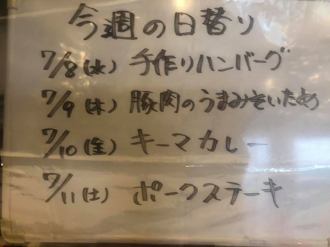 今週の日替り
7/8(水) 手作りハンバーグ
7/9(木) 豚肉のうまみそいため
7/10(金) キーマカレー
7/11(土) ポークステーキ